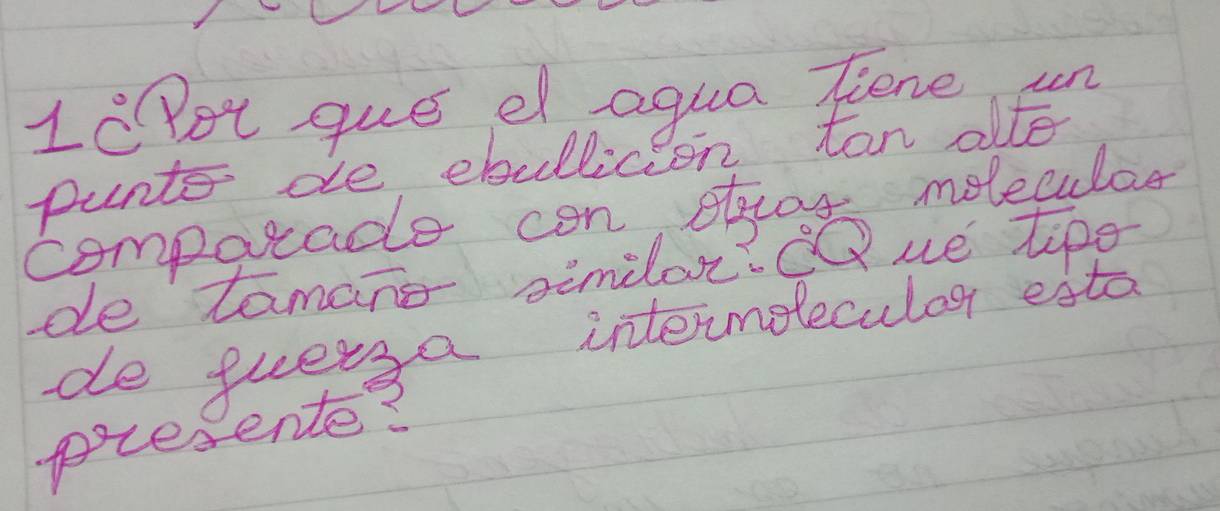 1 ¿Por qué el agua tiene un
punto de ebullición tan alto
comparado con otras moleculas
de tamaño similar? ¿Qué tipo
de fuerza intermolecular esta
presente?